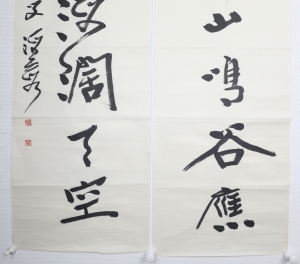 山鳴谷應
海濶天空